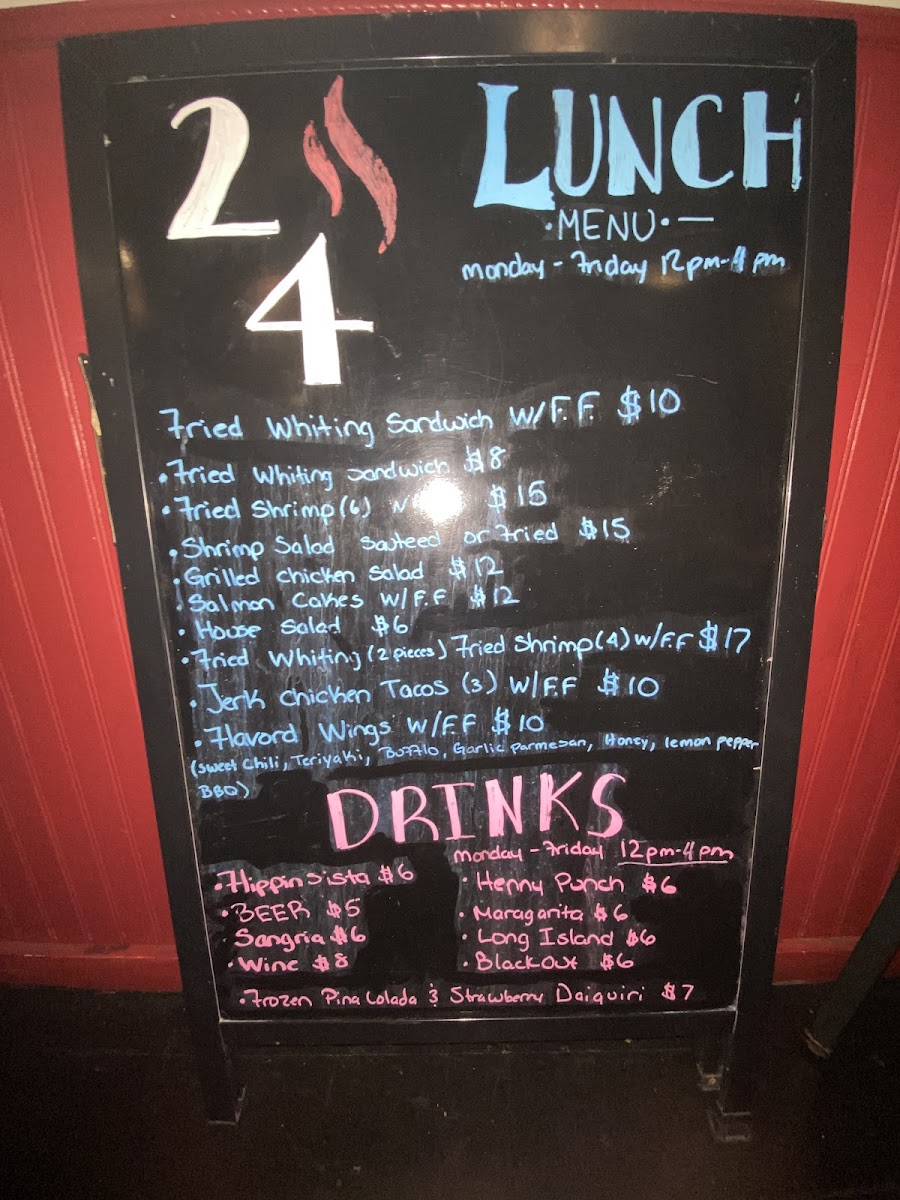 2
4
LUNCH
·MENU·—
monday - Friday 12pm-4pm
Fried Whiting Sandwich W/F.F. $10
•Fried Whiting Sandwich $8
•Fried Shrimp(6) $15
•Shrimp Salad Sauteed or Fried $15
•Grilled chicken Salad $12
•Salmon Cakes W/F.F $12
•House Salad $6
•Fried Whiting(2 pieces) Fried Shrimp(4) W/F.F $17
•Jerk Chicken Tacos (3) W/F.F $10
•Flavord Wings W/F.F $10
(Sweet Chili, Teriyaki, Bufflo, Garlic parmesan, Honey, lemon pepper
BBQ)
DRINKS
monday - Friday 12pm-4pm
•Flippin Sista $6
•BEER $5
•Sangria $6
•Wine $8
•Henny Punch $6
•Maragarita $6
•Long Island $6
•BlackOut $6
•Frozen Pina Colada & Strawberry Daiquiri $7